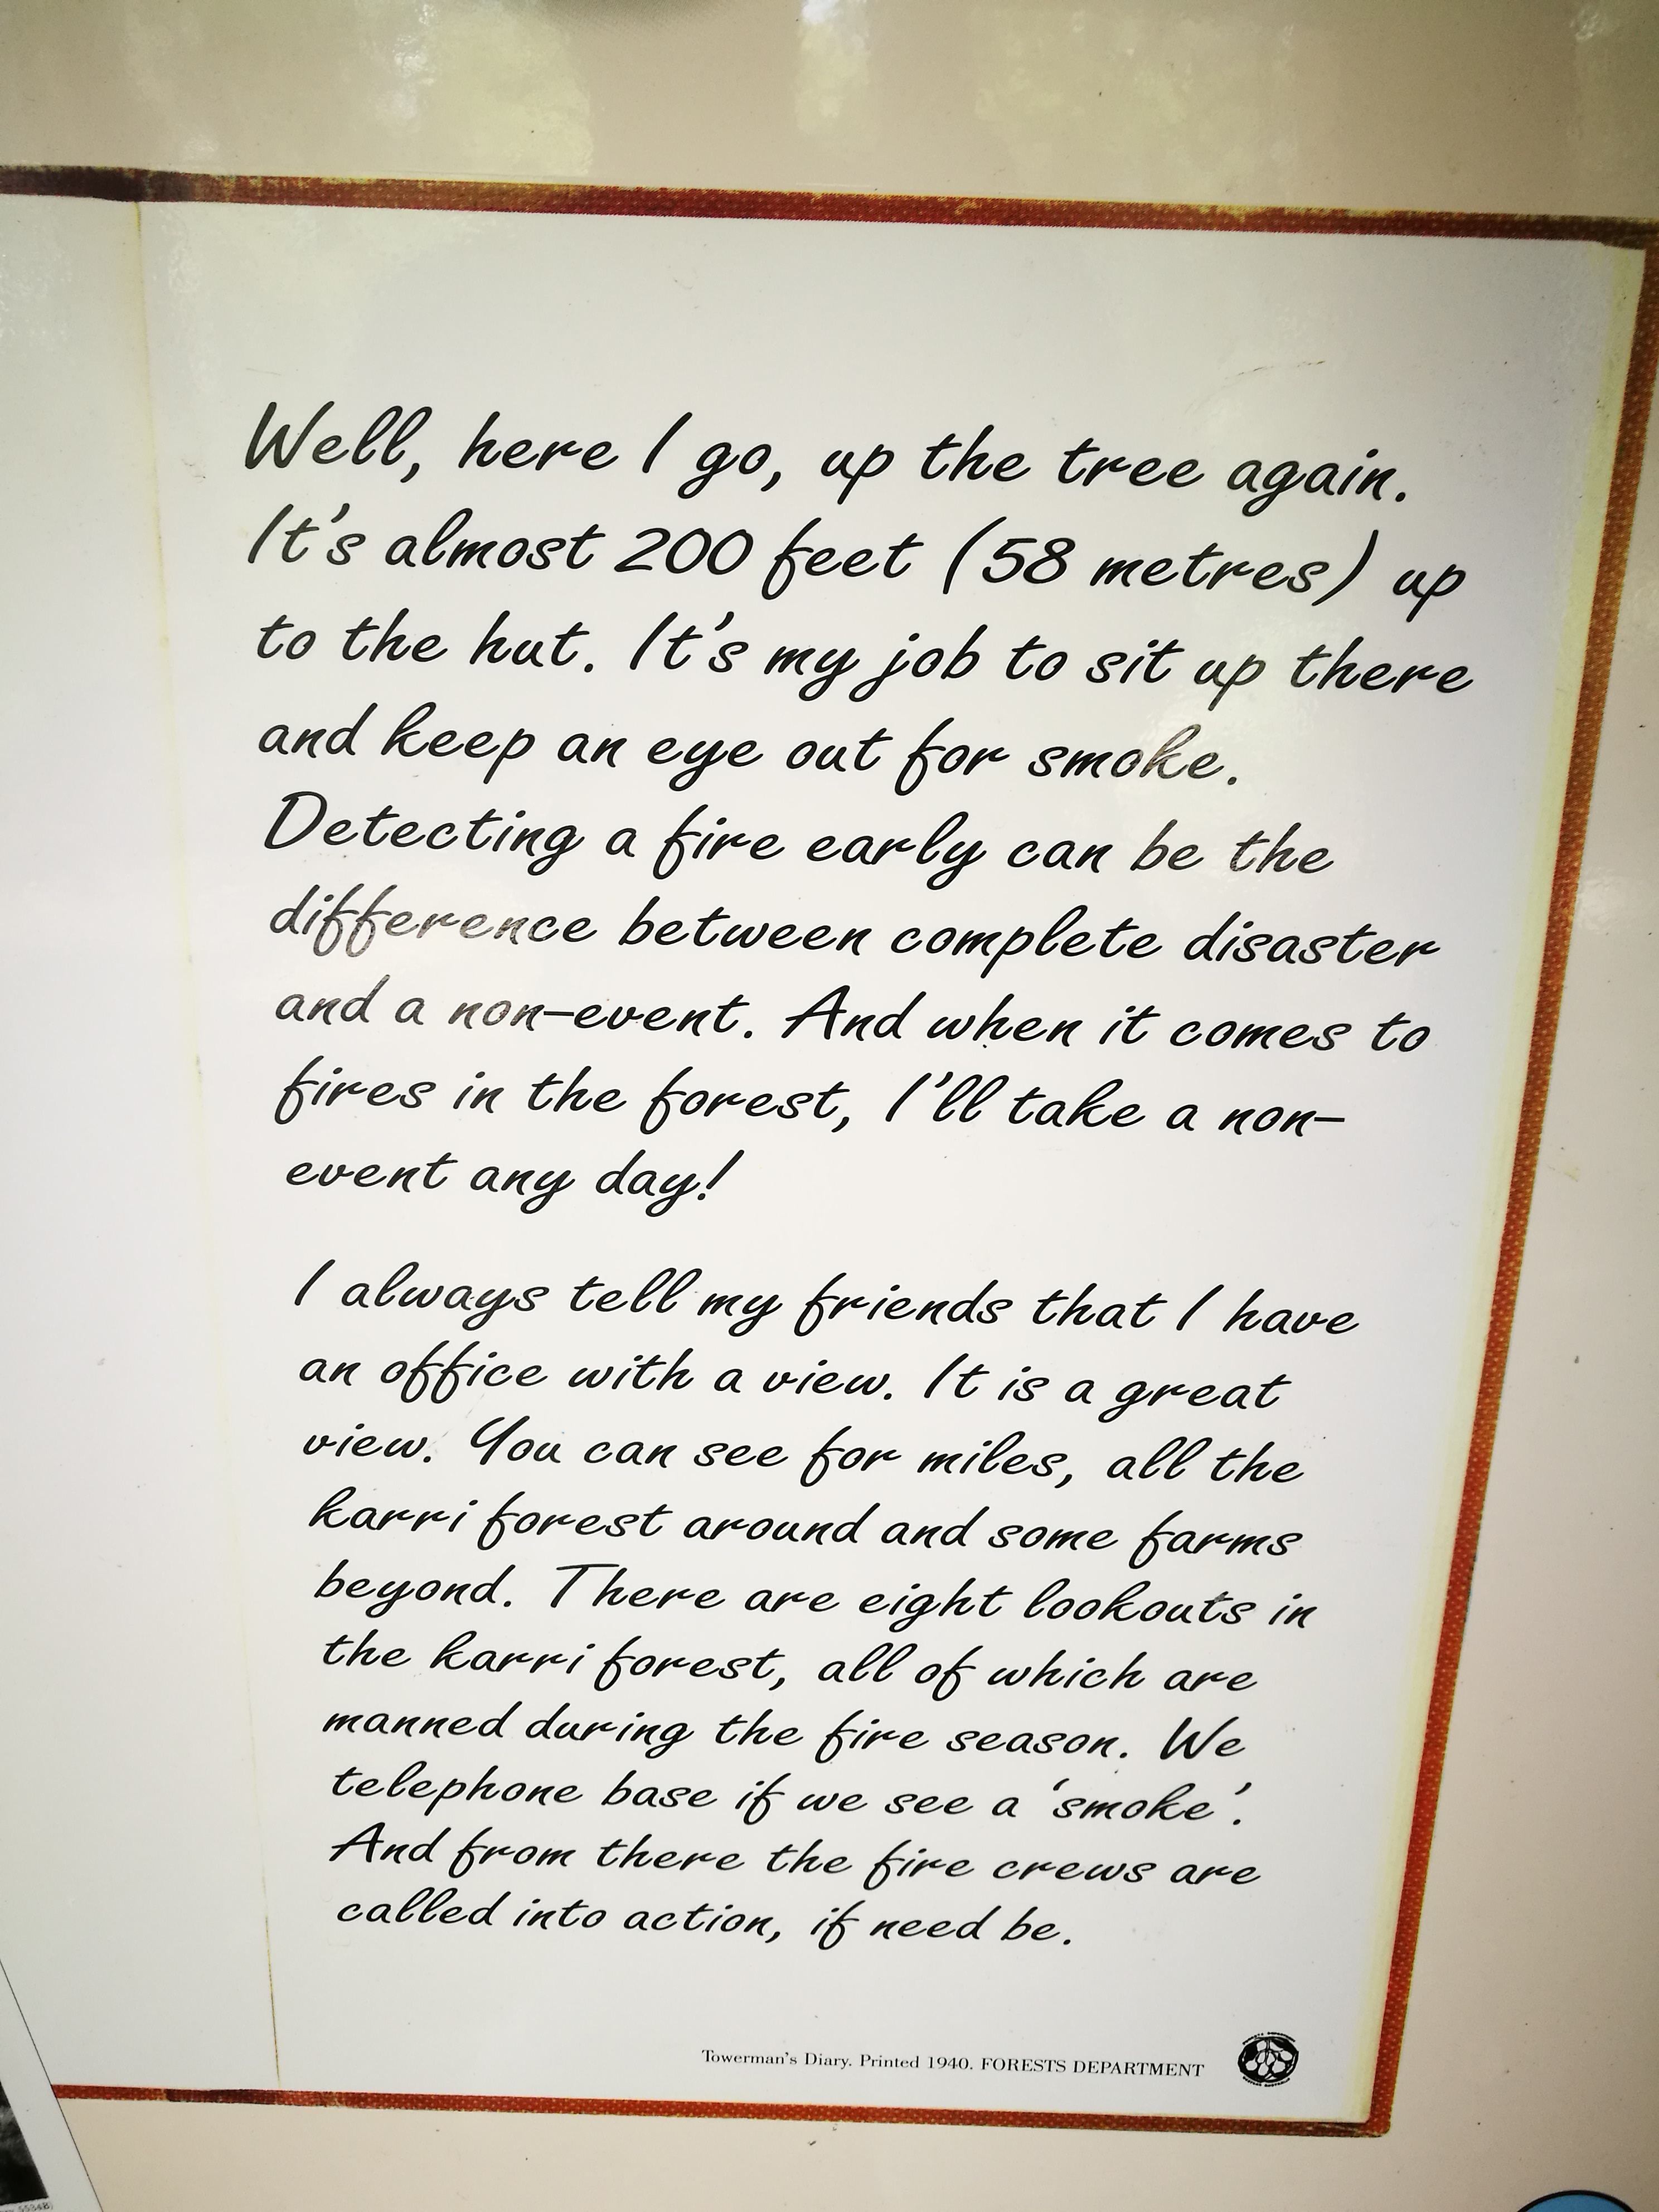 Well, here I go, up the tree again.
It's almost 200 feet (58 metres) up
to the hut. It's my job to sit up there
and keep an eye out for smoke.
Detecting a fire early can be the
difference between complete disaster
and a non-event. And when it comes to
fires in the forest, I'll take a non-
event any day!
I always tell my friends that I have
an office with a view. It is a great
view. You can see for miles, all the
karri forest around and some farms
beyond. There are eight lookouts in
the karri forest, all of which are
manned during the fire season. We
telephone base if we see a 'smoke'.
And from there the fire crews are
called into action, if need be.
Towerman's Diary. Printed 1940. FORESTS DEPARTMENT